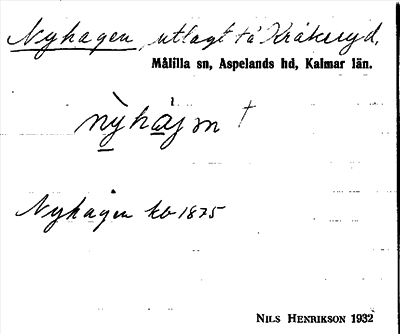 Nyhagen, utlagt få Kråkeryd,
Målilla sn, Aspelands hd, Kalmar län.
nỳhàjən †
Nyhagen kb 1875
NILS HENRIKSON 1932